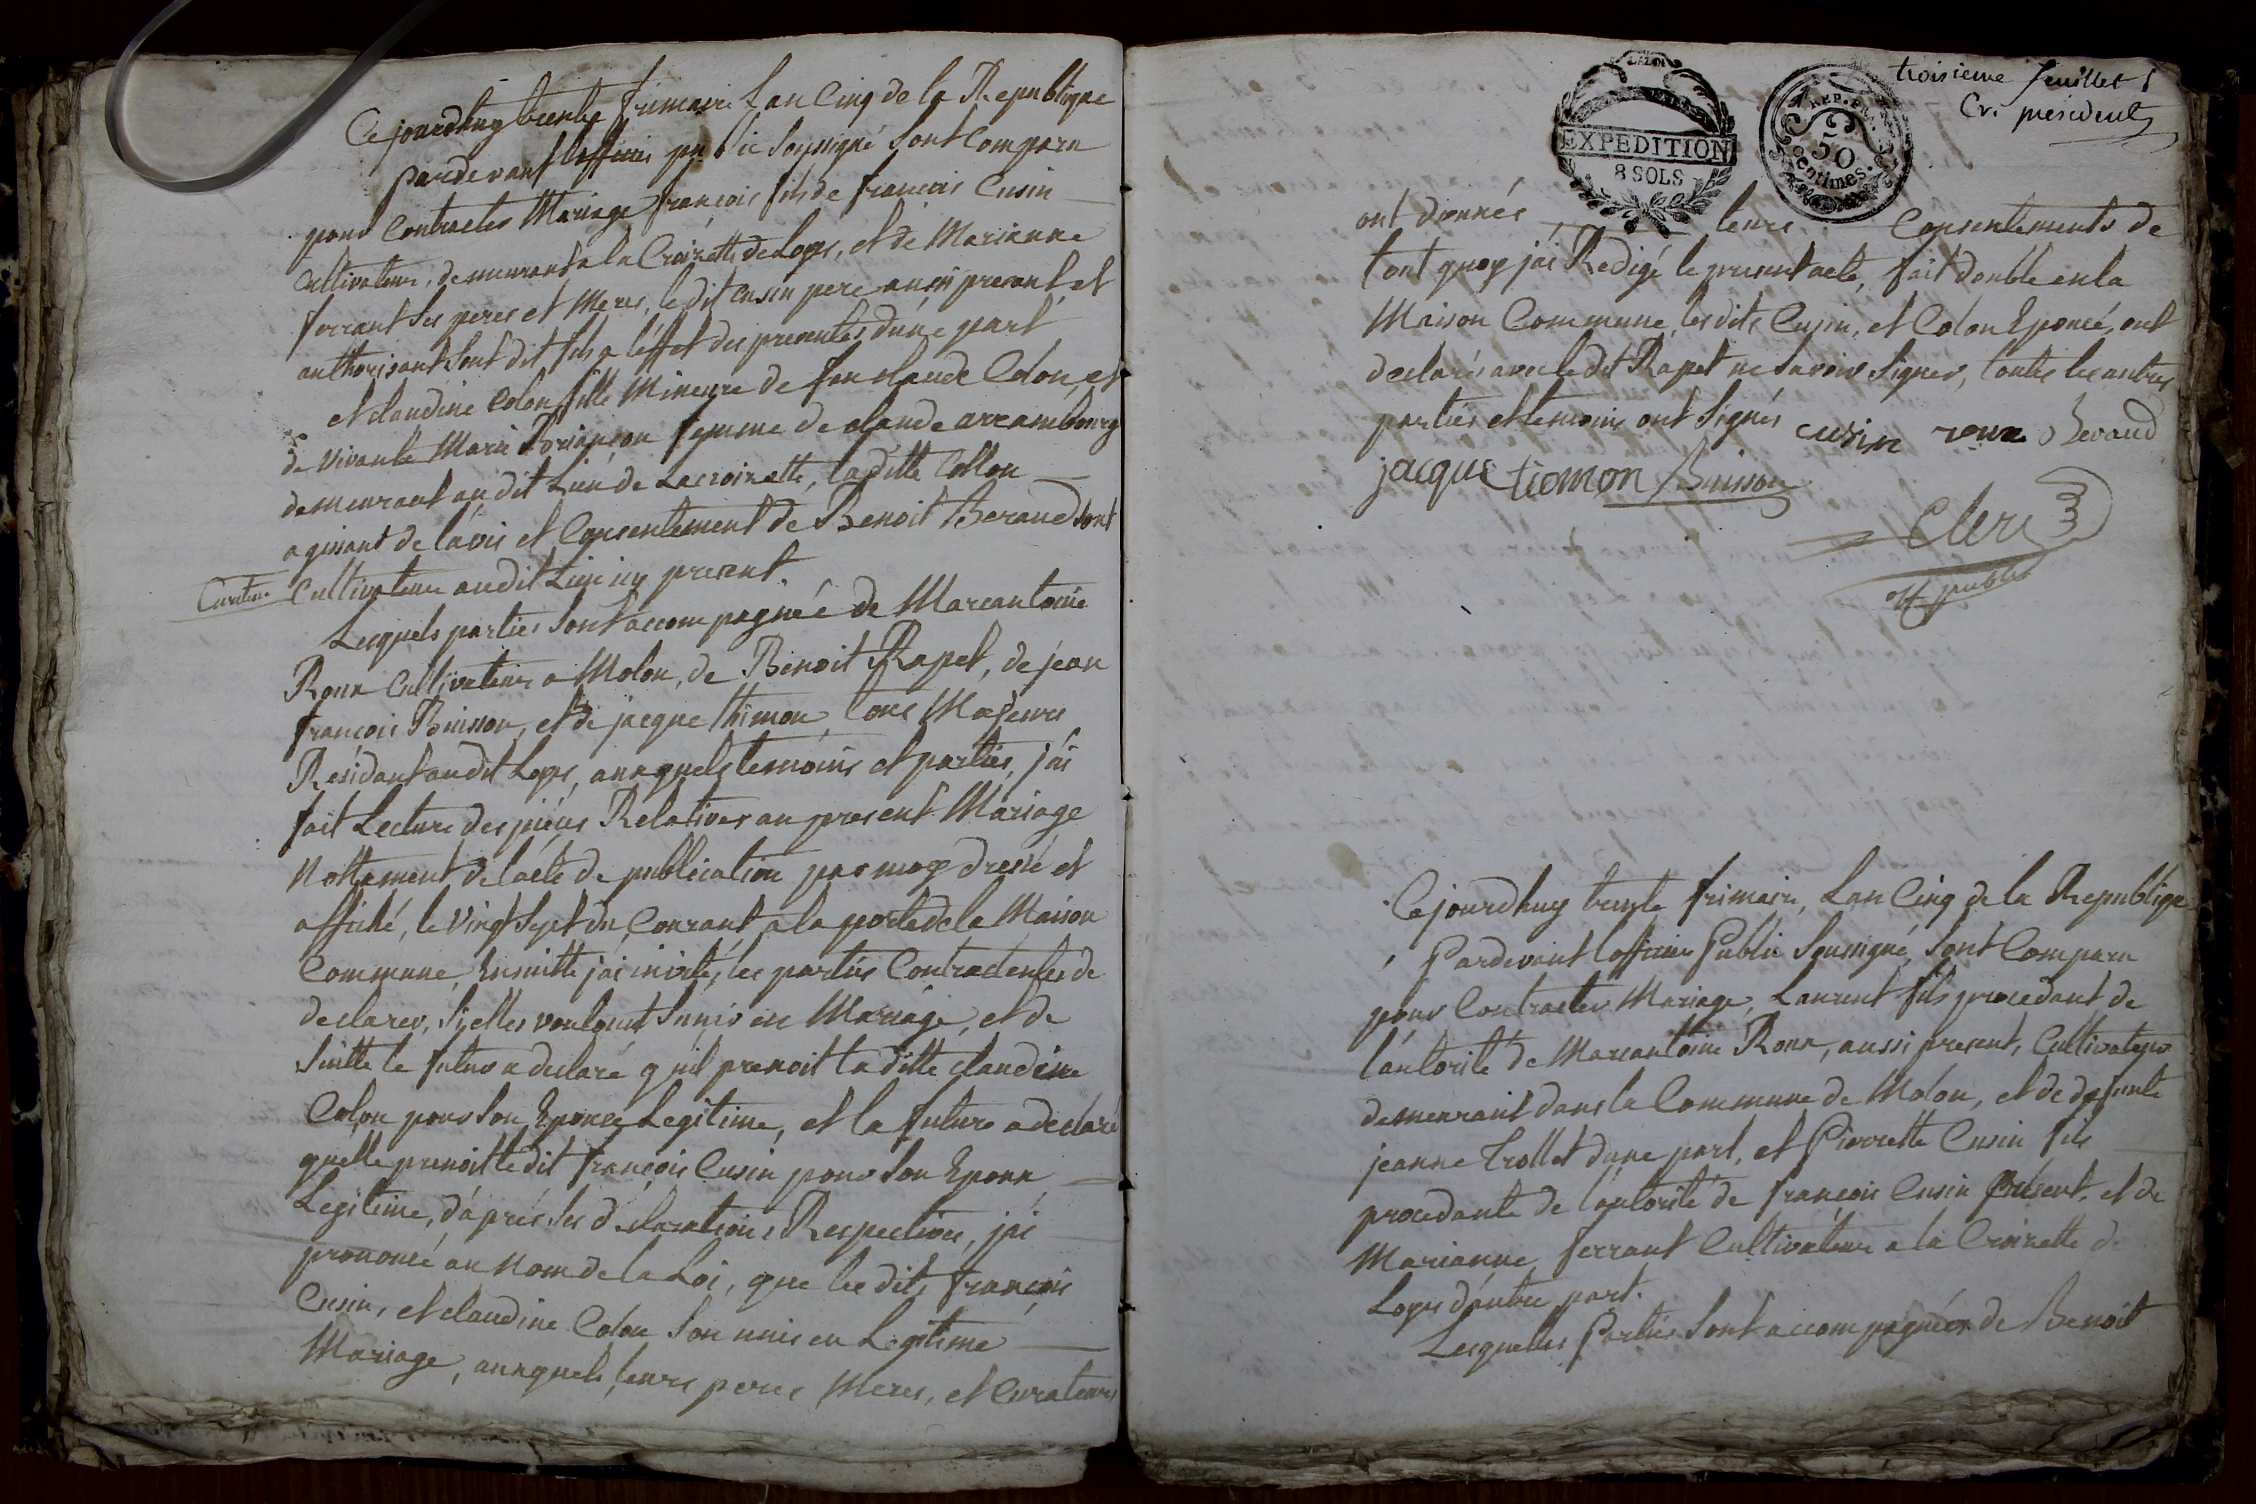 Ce jourdhuy trente frimaire Lan Cinq de la Republique
pardevant lofficier public soussigné sont Comparu
pour Contracter Mariage françois fils de francois Cusin
Cultivateur, demeurant a la Croizette de Loyes, et de Marianne
ferrant ses peres et Meres, le dit Cusin pere aussi present, et
authorisant sont dit fils a l'éffet des presentes dúne part
et claudine Colon fille Mineure de feu claude Colon, et
de vivante Marie Briançon femme de claude arrambourg
demeurant au dit Lieu de Lacroizette, la ditte Collon
agissant de lávis et Consentement de Benoit Beraud sont
Curateur
Cultivateur audit Lieu icy present
Lesquels parties sont accompagnée de Marcantoine
Roux Cultivateur a Molon, de Benoit Rapet, de jean
françois Buisson, et de jacque thimon tous Majeurs
Residant audit Loyes, auxquels temoins et parties, jái
fait Lecture des piéces Relatives au present Mariage
Nottament de lacte de publication par moy dressé et
affiché, le vingt sept du Courant a la porte de la Maison
Commune, Ensuitte jái invité, les parties Contractentes de
declarer, si elles vouloient sunir en Mariage, et de
Suitte le futur a declaré quil prenoit la ditte claudine
Colon pour son Epouse Legitime, et la future a declaré
quelle prenoit le dit françois Cusin pour son Epoux
Legitime, dáprés ses declarations Respectives, jái
prononcé au Nom de la Loi, que les dits françois
Cusin, et claudine Colon son unis en Legitime
Mariage, auxquels leurs peres Meres, et Curateurs
troisieme feuillet
Cr. president
LA LOI
EXPEDITION
8 SOLS
REP. FRA.
50
centimes.
ont donnés leurs Consentements de
tout quoy jái Redigé le present acte, fait double en la
Maison Commune, les dits Cusin, et Colon Epousé, ont
declarés avec le dit Rapet ne savoir signer, toutes les autres
parties et temoins ont signés cusin roux Beraud
jacque tiomon Buisson
Clerc
off public
Cejourdhuy trente frimaire, Lan Cinq de la Republique
Pardevant lofficier Public Soussigné, sont Comparu
pour Contracter Mariage, Laurent fils procedant de
láutorité de Marcantoine Roux, aussi present, Cultivateur
demeurant dans la Commune de Molon, et de defunte
jeanne trollet dune part, et Pierrette Cusin fils
procedante de láutorité de françois Cusin présent, et de
Marianne ferrant Cultivateur a la Croizette de
Loyes dáutre part.
Lesquelles Parties sont accompagnées de Benoit